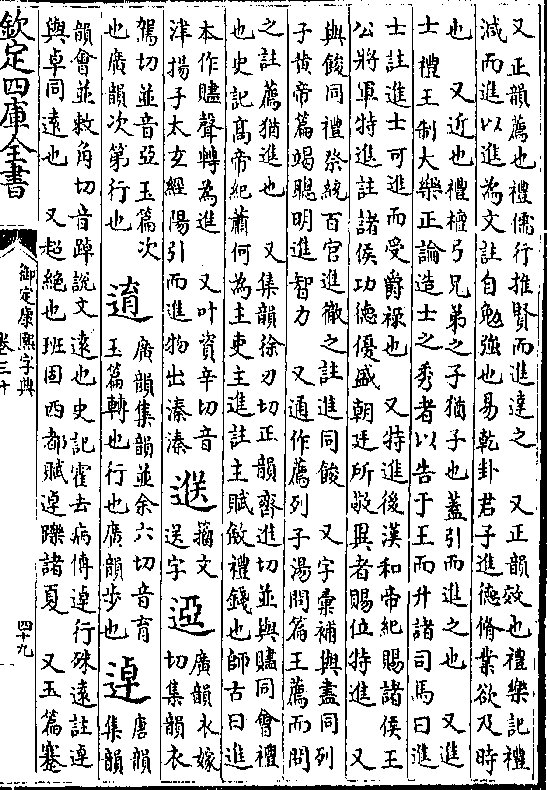 又正韻薦也禮儒行推賢而進達之　又正韻效也禮樂記禮
減而進以進為文註自勉強也易乾卦君子進德脩業欲及時
也　又近也禮檀弓兄弟之子猶子也蓋引而進之也　又進
士禮王制大樂正論造士之秀者以告于王而升諸司馬曰進
士註進士可進而受爵祿也　又特進後漢和帝紀賜諸侯王
公將軍特進註諸侯功德優盛朝廷所敬異者賜位特進　又
與餕同禮祭統百官進徹之註進同餕　又字彙補與盡同列
子黄帝篇竭聰明進智力　又通作薦列子湯問篇王薦而問
之註薦猶進也　又集韻徐刃切正韻齊進切並與賮同會禮
也史記髙帝紀蕭何為主吏主進註主賦斂禮錢也師古曰進
本作賮聲轉為進　又叶資辛切音
津揚子太玄經陽引而進物出溱溱
籀文
送字
䢝
廣韻衣嫁
切集韻衣
駕切並音亞玉篇次
也廣韻次第行也
逳
廣韻集韻並余六切音育
玉篇轉也行也廣韻步也
逴
唐韻
集韻
韻會並敕角切音踔說文遠也史記霍去病傳逴行殊遠註逴
與卓同遠也　又超絶也班固西都賦逴躒諸夏　又玉篇蹇
欽定四庫全書
御定康熙字典
卷三十
四十九